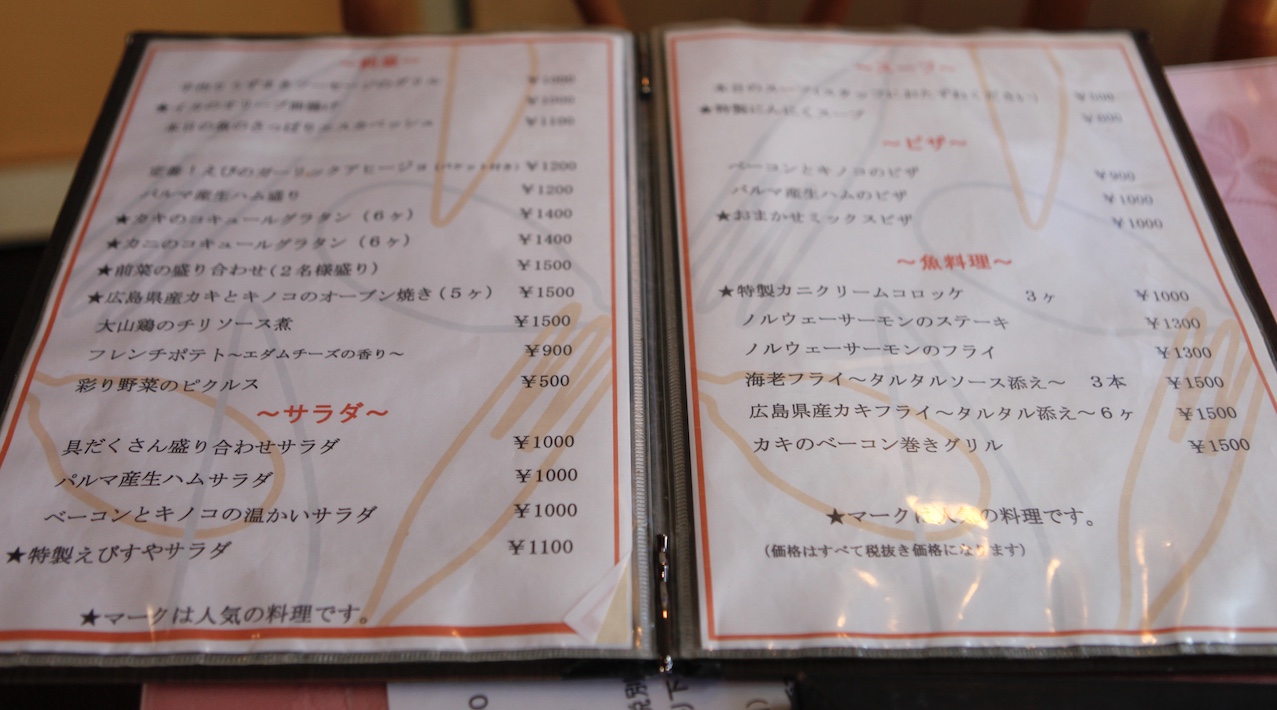 ～前菜～
¥1000
★タコのオリーブ
本日の魚のさっぱりエスカベッシュ ¥1100
定番！えびのガーリックアヒージョ(バケット付き) ¥1200
パルマ産生ハム盛り ¥1200
★カキのコキュールグラタン（６ヶ） ¥1400
★カニのコキュールグラタン（６ヶ） ¥1400
★前菜の盛り合わせ(２名様盛り) ¥1500
★広島県産カキとキノコのオーブン焼き(５ヶ) ¥1500
大山鶏のチリソース煮 ¥1500
フレンチポテト～エダムチーズの香り～ ¥900
彩り野菜のピクルス ¥500
～サラダ～
具だくさん盛り合わせサラダ ¥1000
パルマ産生ハムサラダ ¥1000
ベーコンとキノコの温かいサラダ ¥1000
★特製えびすやサラダ ¥1100
★マークは人気の料理です。
～スープ～
本日のスープ(スタッフにおたずねください)
★特製にんにくスープ ¥600
～ピザ～
ベーコンとキノコのピザ ¥900
パルマ産生ハムのピザ ¥1000
★おまかせミックスピザ ¥1000
～魚料理～
★特製カニクリームコロッケ ３ヶ ¥1000
ノルウェーサーモンのステーキ ¥1300
ノルウェーサーモンのフライ ¥1300
海老フライ～タルタルソース添え～ ３本 ¥1500
広島県産カキフライ～タルタル添え～６ヶ ¥1500
カキのベーコン巻きグリル ¥1500
★マークは人気の料理です。
（価格はすべて税抜き価格になります）